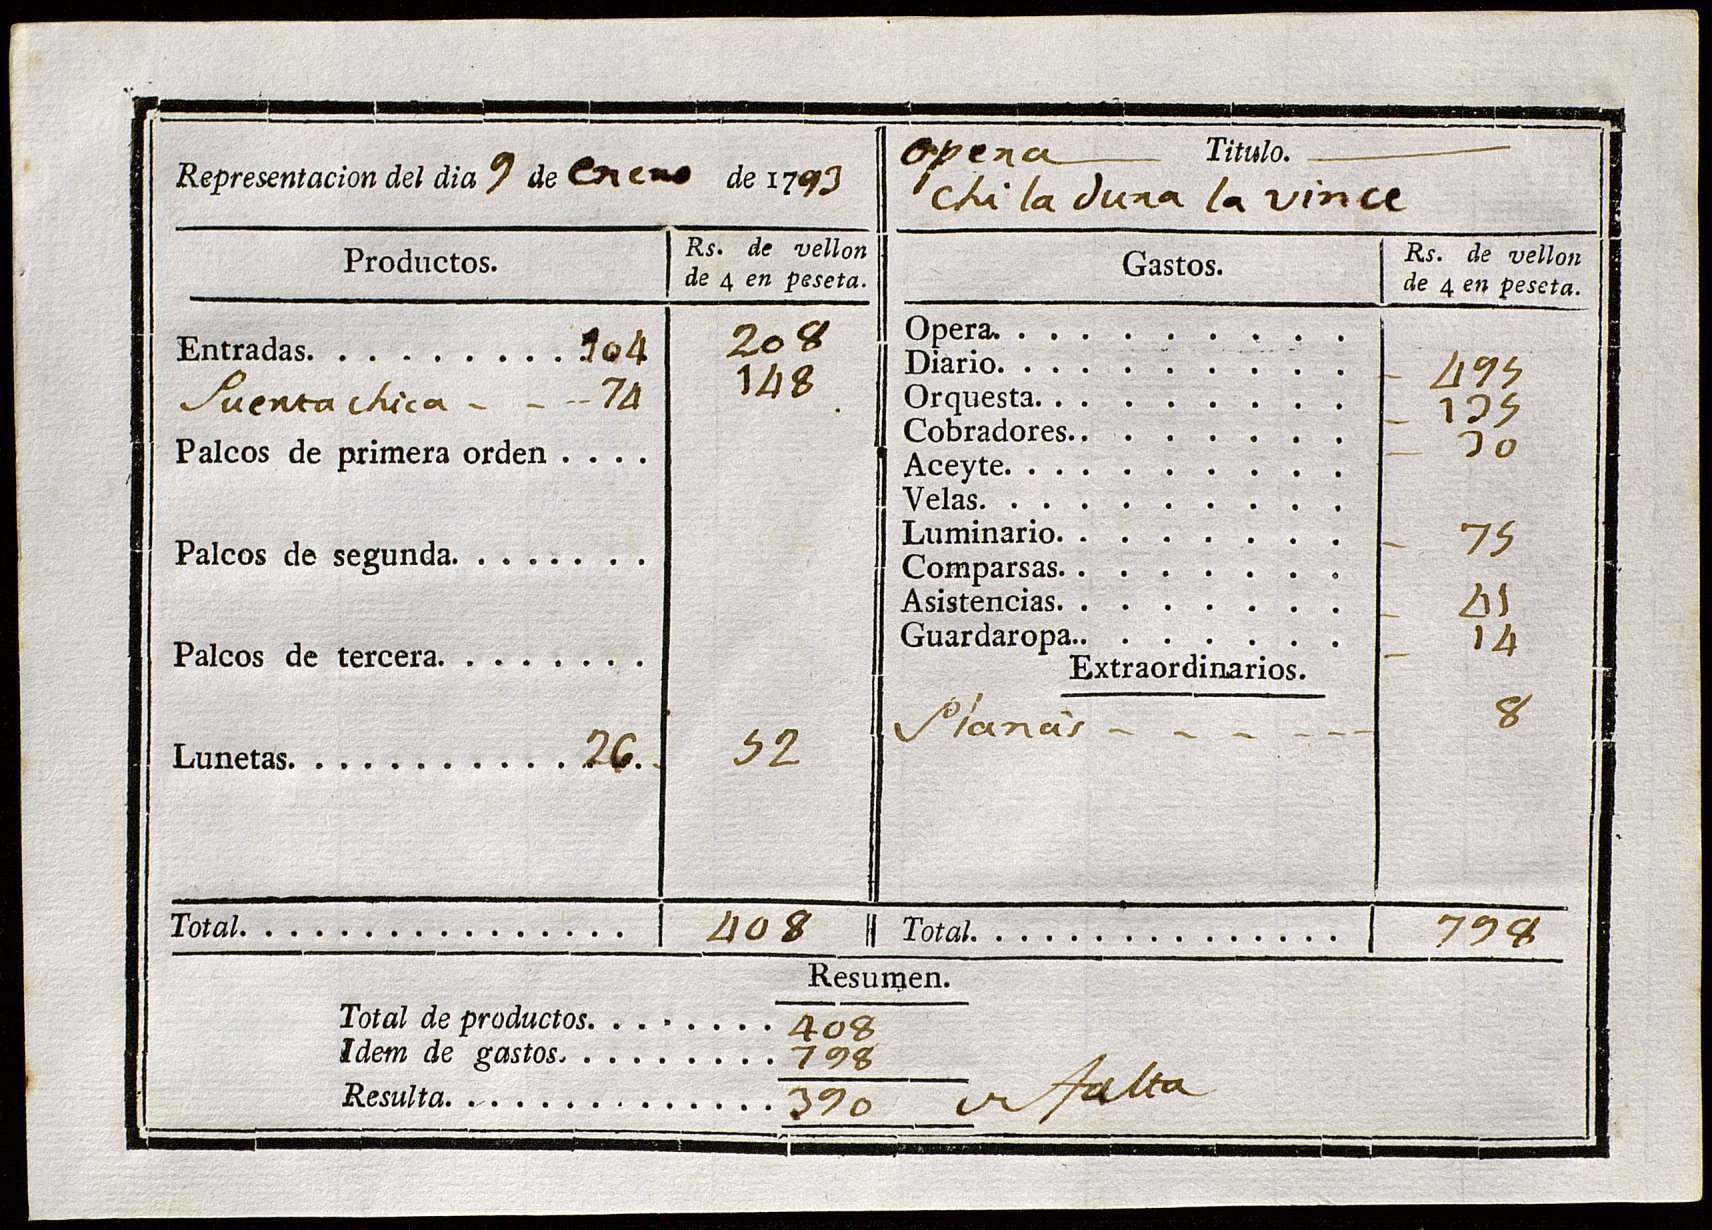 Representacion del dia 9 de enero de 1793
Productos.
Rs. de vellon
de 4 en peseta.
Entradas. . . . . . . . . . 104 208
Puerta chica - - -- 74 148
Palcos de primera orden . . . .
Palcos de segunda. . . . . . . .
Palcos de tercera. . . . . . . .
Lunetas. . . . . . . . . . . . . 26. 52
Total. . . . . . . . . . . . . . . . 408
opera Titulo.
chi la dura la vince
Gastos.
Rs. de vellon
de 4 en peseta.
Opera. . . . . . . . . .
Diario. . . . . . . . . . 495
Orquesta. . . . . . . . . 135
Cobradores. . . . . . . . 30
Aceyte. . . . . . . . . .
Velas. . . . . . . . . .
Luminario. . . . . . . . 75
Comparsas. . . . . . . .
Asistencias. . . . . . . . 41
Guardaropa. . . . . . . . 14
Extraordinarios.
- - - - - - 8
Total. . . . . . . . . . . . . . . 798
Resumen.
Total de productos. . . . . . . . 408
Idem de gastos. . . . . . . . . 798
Resulta. . . . . . . . . . . . . . 390 falta